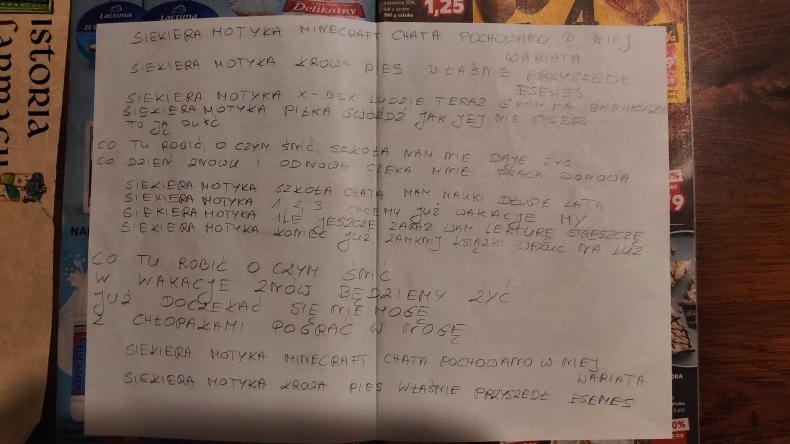 Lactima
Lactima
Delikatny
1,25
Istoria
SIEKIERA MOTYKA MINECRAFT CHATA POCHOWANO W NIEJ
WARIATA
SIEKIERA MOTYKA KROWA PIES WŁAŚNIE PRZYSZEDŁ
ESEMES
SIEKIERA MOTYKA X-BOX LUDZIE TERAZ GRAM NA
SIEKIERA MOTYKA PIŁKA GWÓŹDŹ JAK JEJ NIE CHCESZ
TO JĄ PUŚĆ
CO TU ROBIĆ, O CZYM ŚNIĆ, SZKOŁA NAM NIE DAJE ŻYĆ
CO DZIEŃ ZNOWU I ODNOWA CZEKA MNIE PRACA DOMOWA
SIEKIERA MOTYKA SZKOŁA CHATA MAM NAUKI DŁUGIE LATA
SIEKIERA MOTYKA 1, 2, 3 CHCEMY JUŻ WAKACJE MY
SIEKIERA MOTYKA ILE JESZCZE ZARAZ WAM LEKTURĘ STRESZCZĘ
SIEKIERA MOTYKA KONIEC JUŻ, ZAMKNIJ KSIĄŻKI WRZUĆ NA LUZ
CO TU ROBIĆ O CZYM ŚNIĆ
W WAKACJE ZNÓW BĘDZIEMY ŻYĆ
JUŻ DOCZEKAĆ SIĘ NIE MOGĘ
Z CHŁOPAKAMI POGRAĆ W NOGĘ
SIEKIERA MOTYKA MINECRAFT CHATA POCHOWANO W NIEJ
WARIATA
SIEKIERA MOTYKA KROWA PIES WŁAŚNIE PRZYSZEDŁ ESEMES